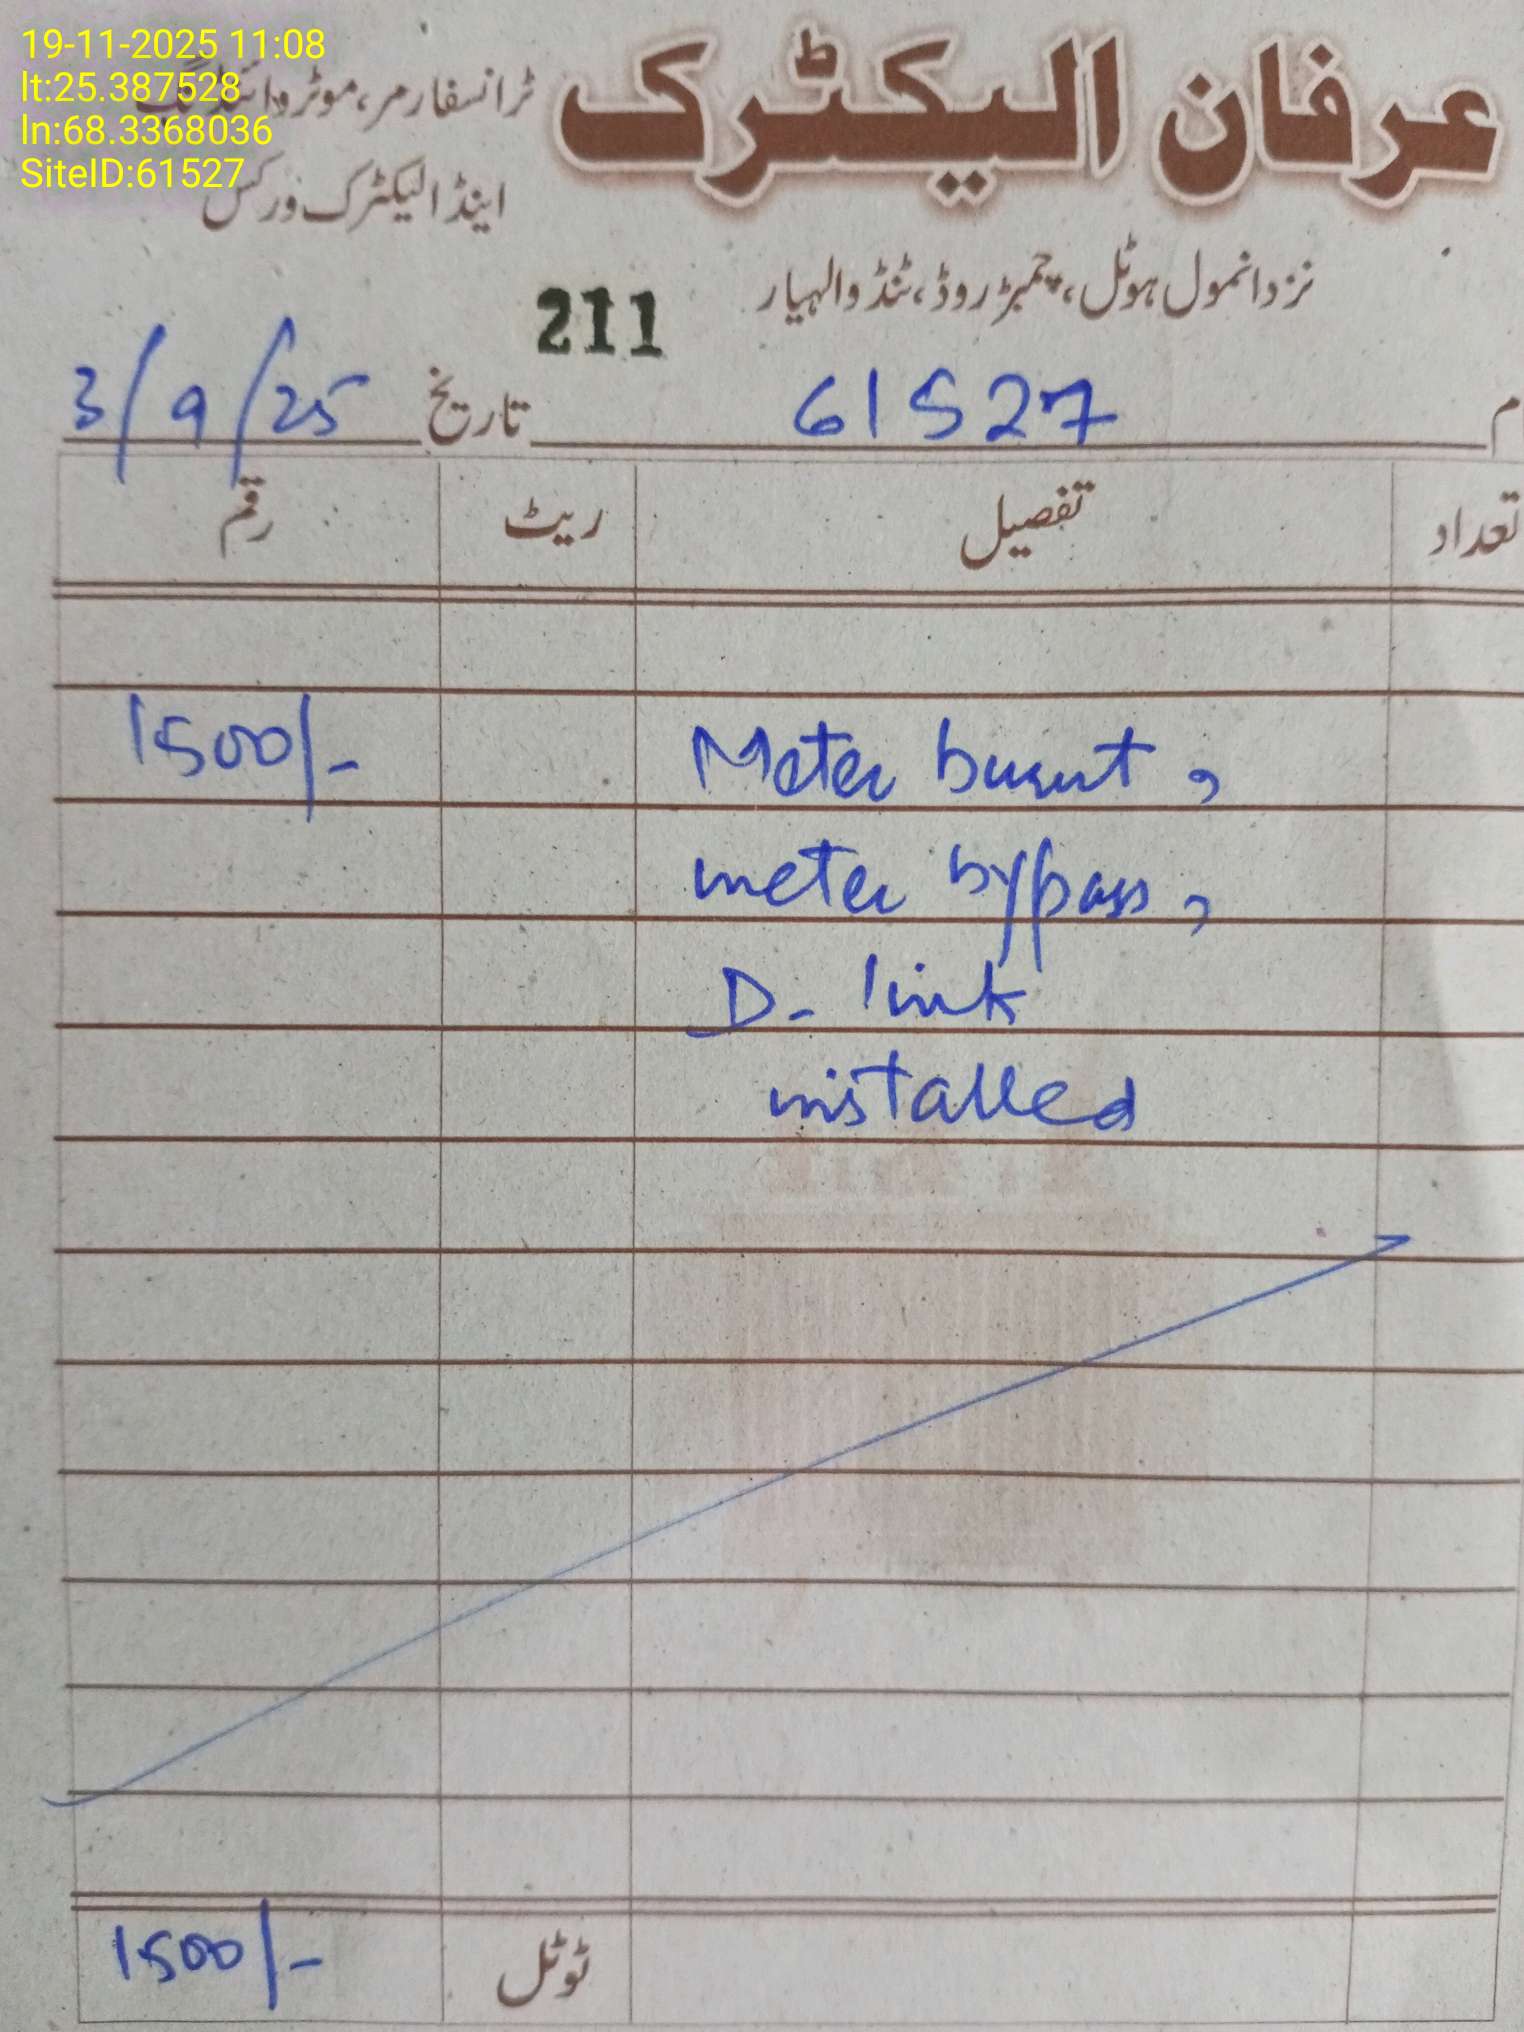 19-11-2025 11:08
lt:25.387528
ln:68.3368036
SiteID:61527
عرفان الیکٹرک
ٹرانسفارمر، موٹر وائنڈنگ
اینڈ الیکٹرک ورکس
نزد انمول ہوٹل، چمبڑ روڈ، ٹنڈوالہیار
211
61527 تاریخ 3/9/25
تعداد تفصیل ریٹ رقم
Meter burnt, 1500/-
meter bypass,
D- link
installed
ٹوٹل 1500/-